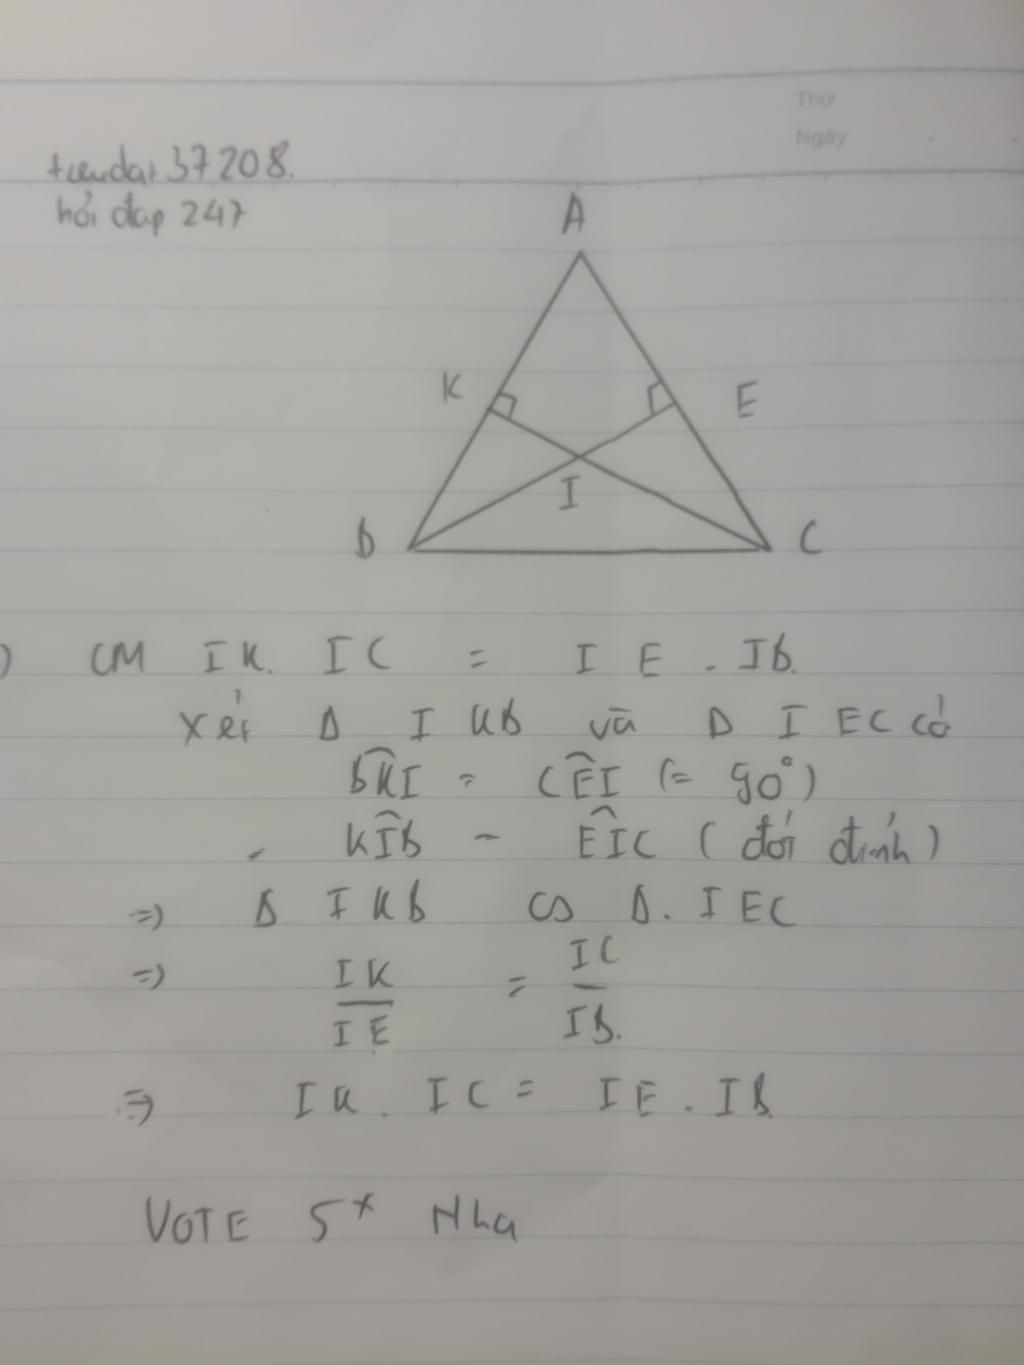 Thứ
Ngày
tiendat37208.
hỏi đáp 247
A
K
E
I
B
C
) CM IK. IC = IE. IB.
Xét Δ IKB và Δ IEC có
BK̂I = CÊI (= 90°)
. KÎB = EÎC (đối đỉnh)
=> Δ IKB ∽ Δ. IEC
=> IK/IE = IC/IB.
=> IK. IC = IE. IB
VOTE 5* Nha